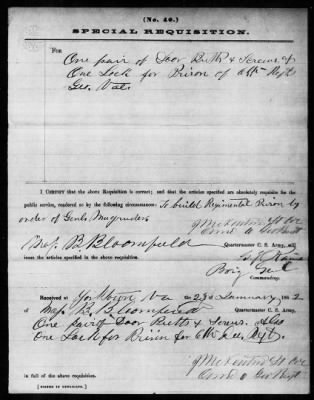 (No. 40.)
SPECIAL REQUISITION.
For
One pair of Door Butts & Screws &
One Lock for Prison of 6th Regt
Geo. Vols
I CERTIFY that the above Requisition is correct; and that the articles specified are absolutely requisite for the
public service, rendered so by the following circumstances: To build Regimental Prison by
order of Genl. Magruder
Maj. B. Bloomfield Quartermaster C. S. Army, will
issue the articles specified in the above requisition.
Brig Genl
Commanding.
Received at York Town Va the 23d January, 1862
Maj. B. Bloomfield Quartermaster C. S. Army,
One pair of Door Butts & Screws. &
One Lock for Prison for 6th Regt.
in full of the above requisition.
[SIGNED IN DUPLICATE.]